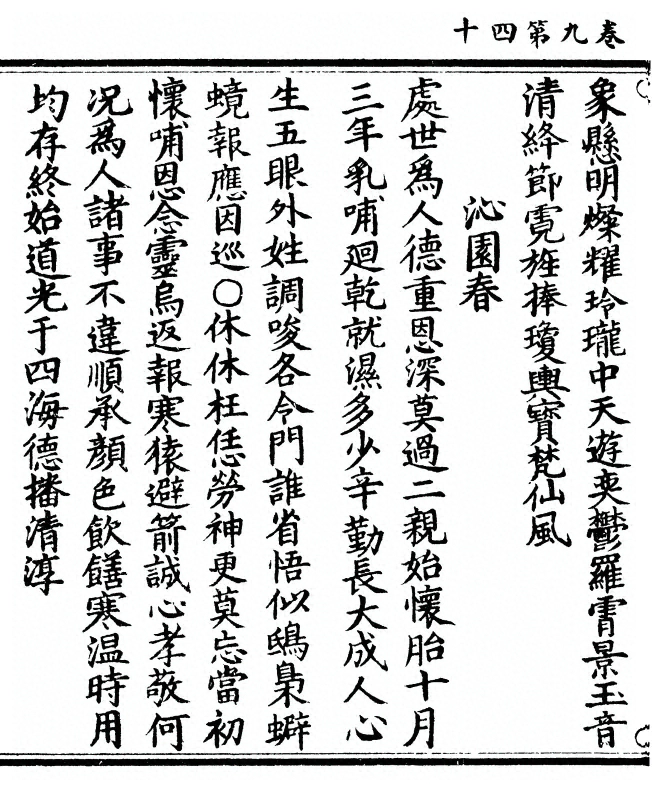 卷九第四十
象懸明燦耀玲瓏中天遊奕鬱羅霄景玉音
清絳節霓旌捧瓊輿寶梵仙風
沁園春
處世爲人德重恩深莫過二親始懷胎十月
三年乳哺廻乾就濕多少辛勤長大成人心
生五眼外姓調唆各令門誰省悟似鴟梟蠏
蜣報應因巡〇休休枉恁勞神更莫忘當初
懷哺恩念靈烏返報寒猿避箭誠心孝敬何
况爲人諸事不違順承顏色飲饍寒温時用
均存終始道光于四海德播清淳